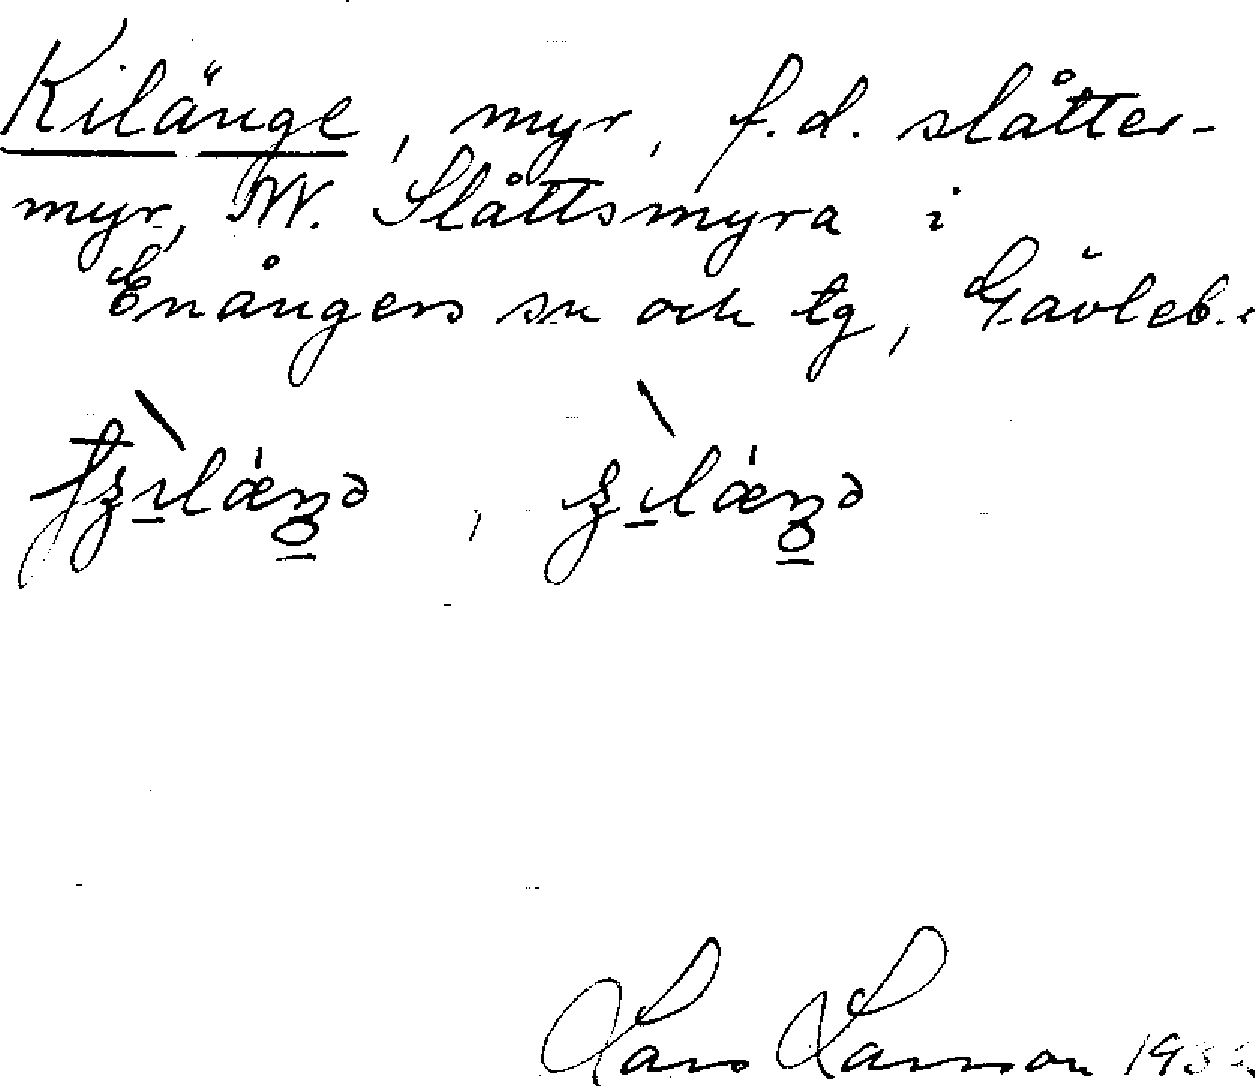 Kilänge, myr, f.d. slåtter-
myr, NV. Slåttsmyra i
Enångers sn och tg, Gävleb.
Lars Larsson 193